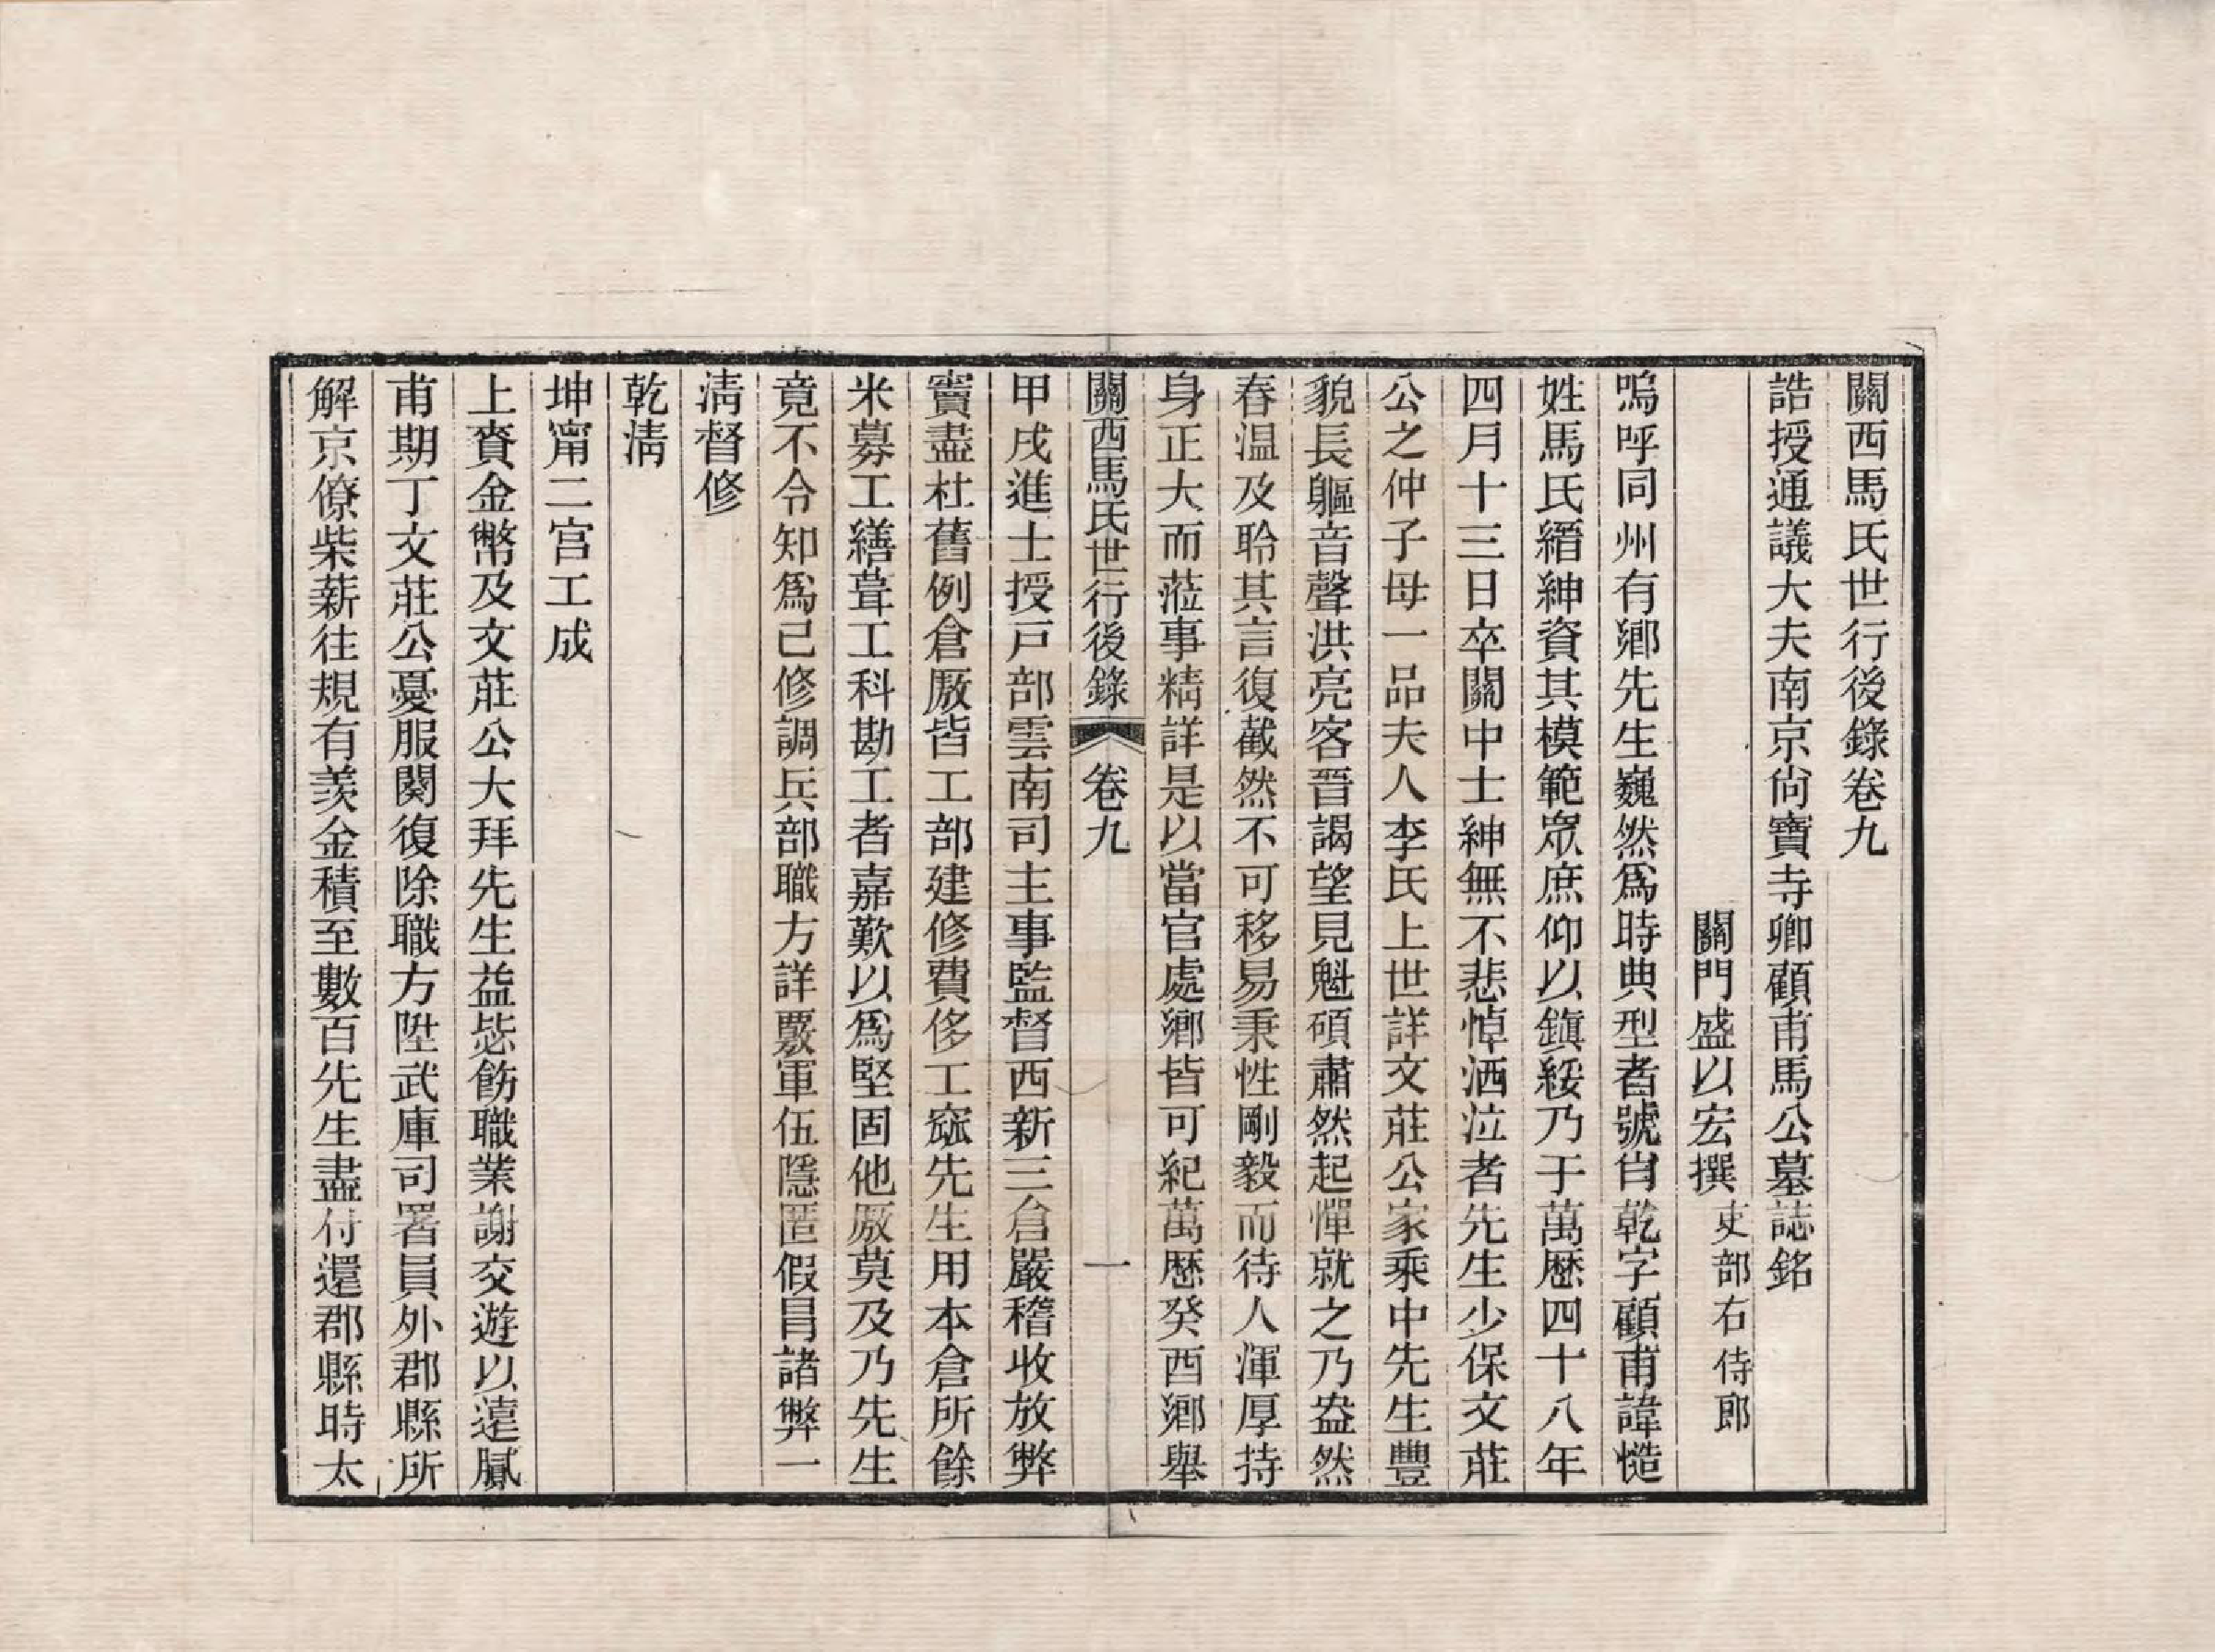 關西馬氏世行後錄卷九
誥授通議大夫南京尙寶寺卿顧甫馬公墓誌銘
關門盛以宏撰吏部右侍郎
嗚呼同州有鄉先生巍然爲時典型者號自乾字顧甫諱慥
姓馬氏縉紳資其模範眾庶仰以鎭綏乃于萬厯四十八年
四月十三日卒關中士紳無不悲悼洒泣者先生少保文莊
公之仲子母一品夫人李氏上世詳文莊公家乘中先生豐
貌長軀音聲洪亮客晉謁望見魁碩肅然起憚就之乃盎然
春温及聆其言復截然不可移易秉性剛毅而待人渾厚持
身正大而蒞事精詳是以當官處鄉皆可紀萬厯癸酉鄉舉
關西馬氏世行後錄 卷九 一
甲戌進士授戸部雲南司主事監督西新三倉嚴稽收放弊
竇盡杜舊例倉厫皆工部建修費侈工窳先生用本倉所餘
米募工繕葺工科勘工者嘉歎以爲堅固他厫莫及乃先生
竟不令知爲己修調兵部職方詳覈軍伍隱匿假冒諸弊一
淸督修
乾淸
坤甯二宮工成
上賚金幣及文莊公大拜先生益毖飭職業謝交遊以遠膩
甫期丁文莊公憂服闋復除職方陞武庫司署員外郡縣所
解京僚柴薪往規有羨金積至數百先生盡付還郡縣時太